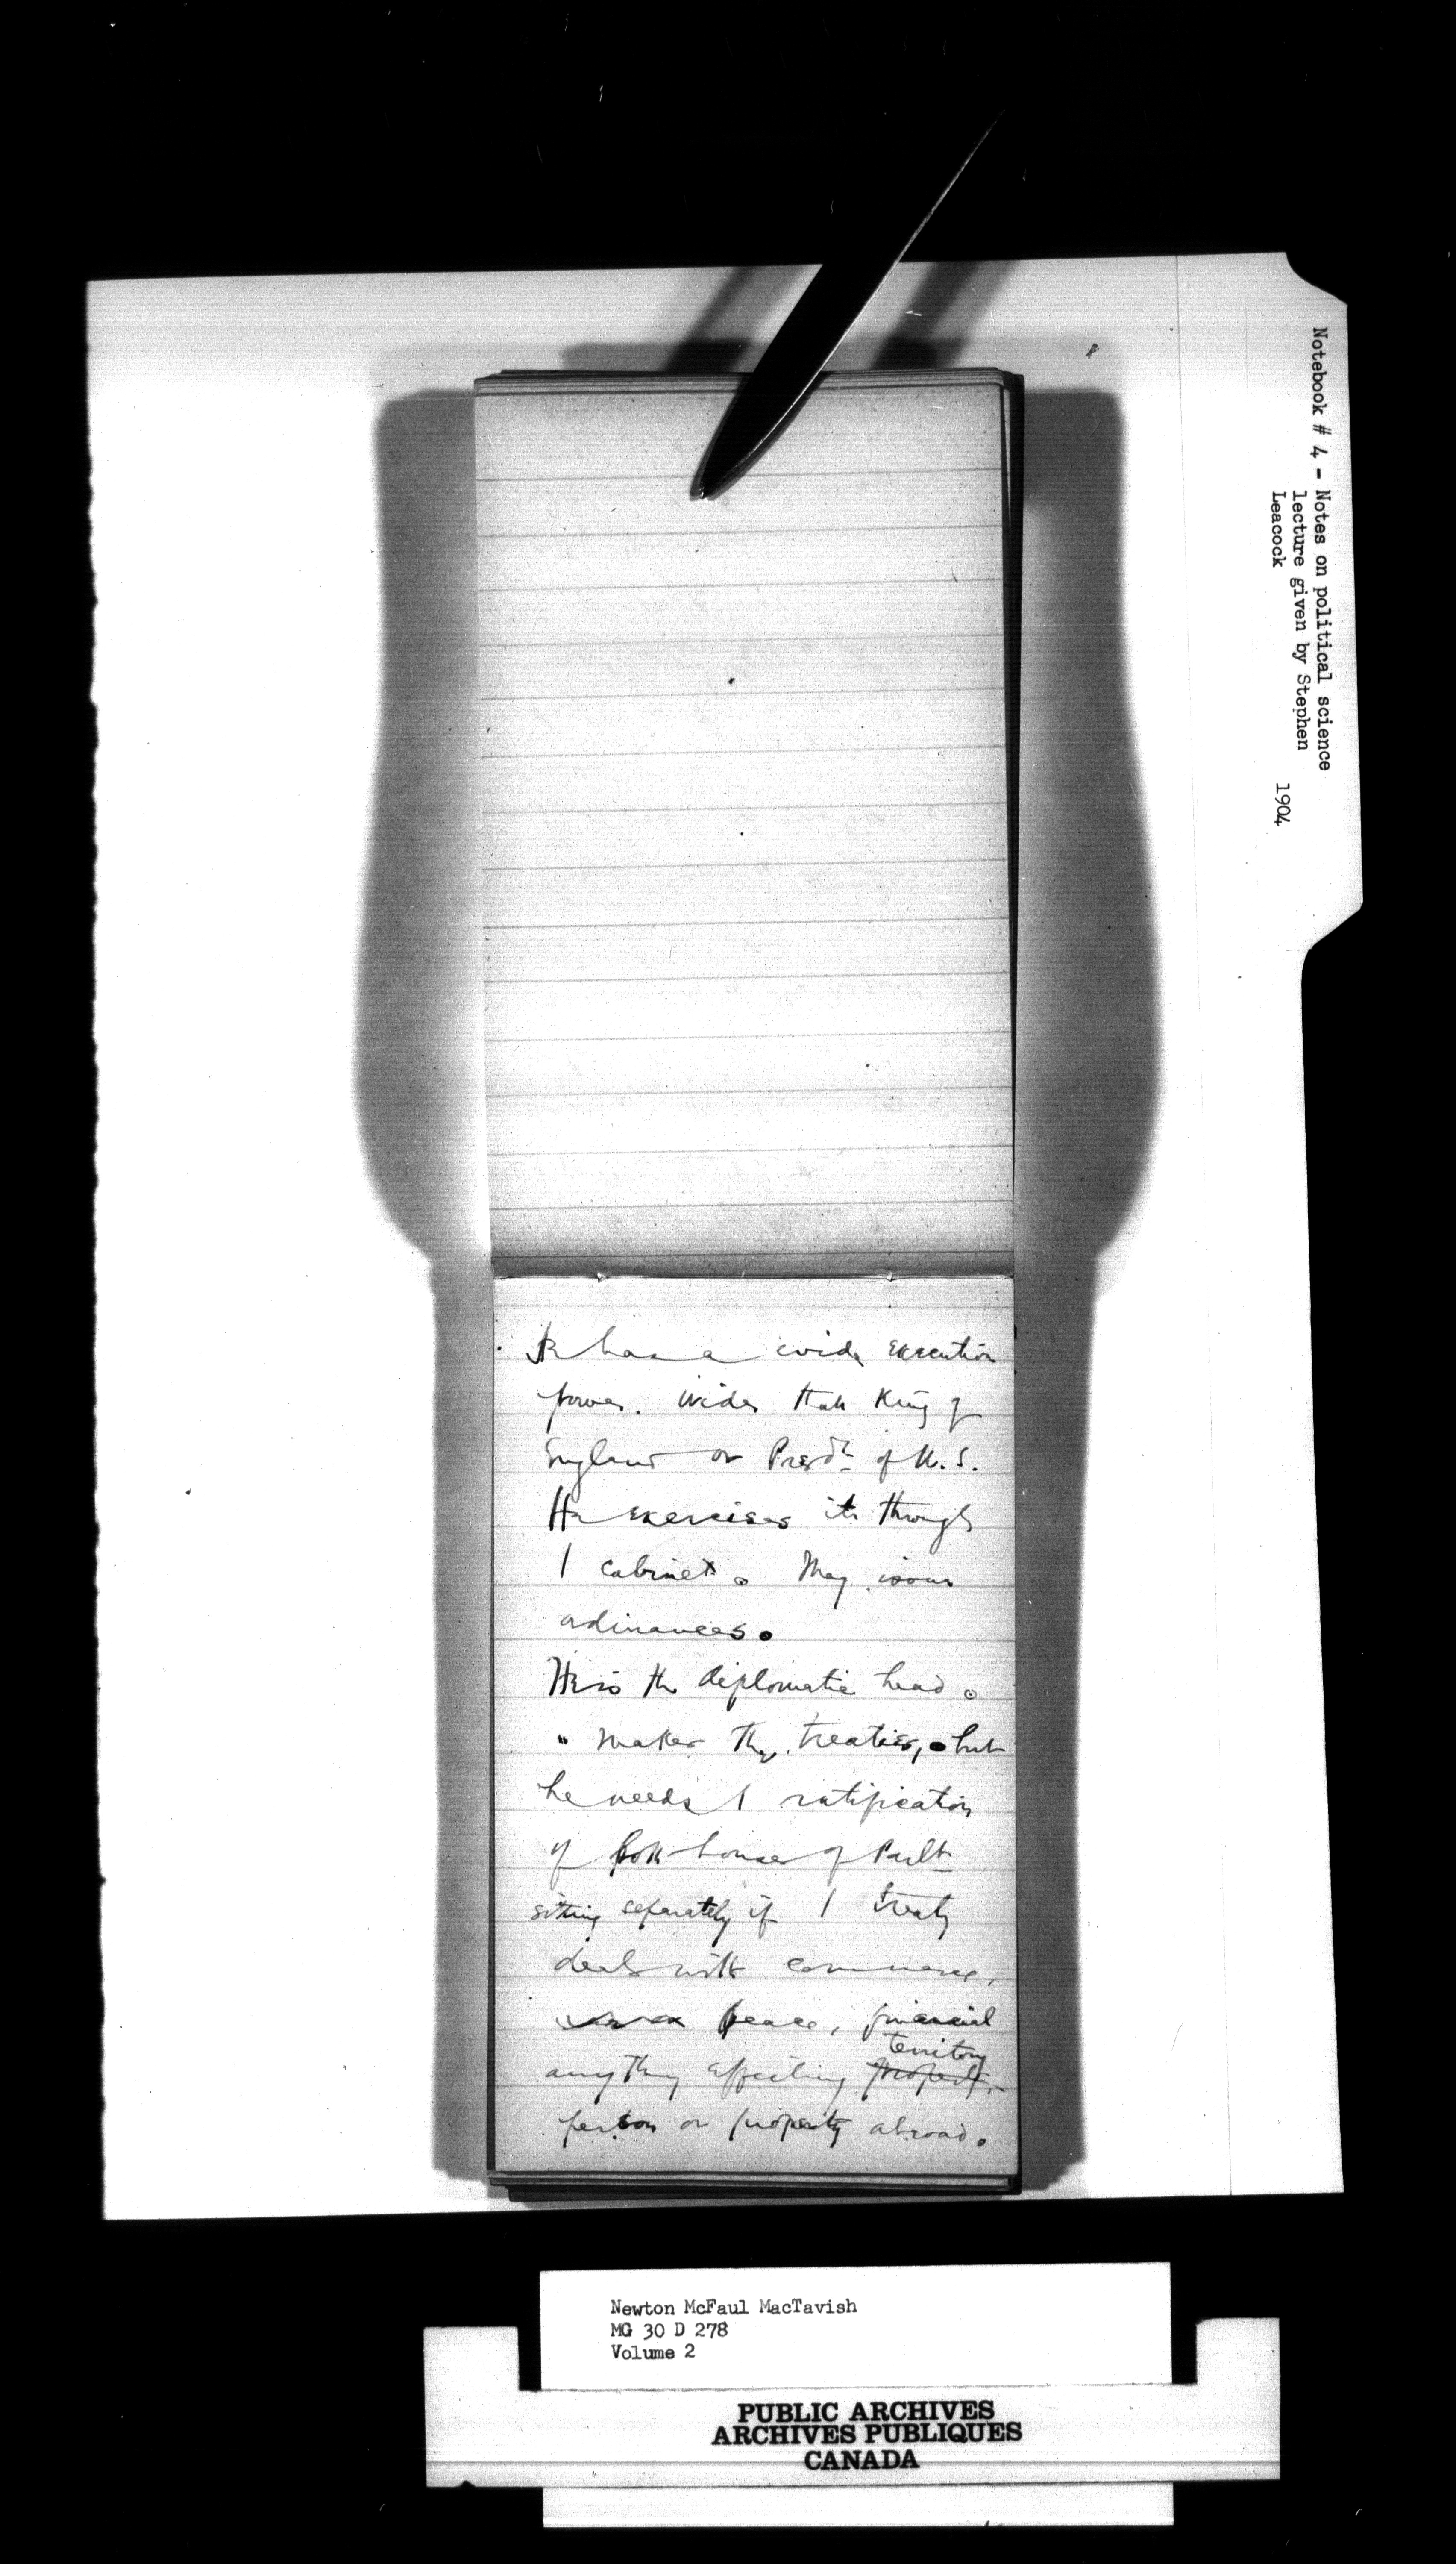 Notebook # 4 - Notes on political science
lecture given by Stephen
Leacock 1904
He has a wide executive
power. Wider than King of
England or Presdt of U. S.
He exercises it through
/ cabinet. May issue
ordinances.
He is the diplomatic head.
" makes the treaties, but
he needs / ratification
of both houses of Parlt
sitting separately if / treaty
deals with commerce,
peace, financial
territory
anything effecting
person or property abroad.
Newton McFaul MacTavish
MG 30 D 278
Volume 2
PUBLIC ARCHIVES
ARCHIVES PUBLIQUES
CANADA